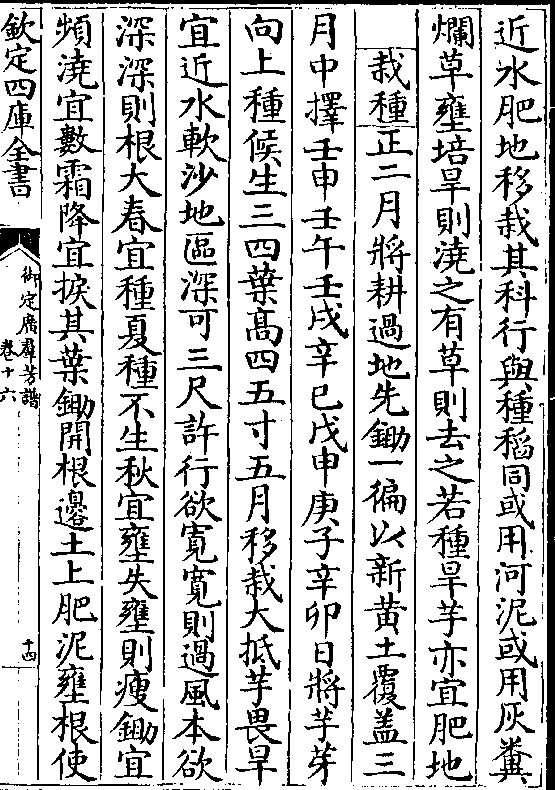 近水肥地移栽其科行與種稻同或用河泥或用灰糞
爛草壅培旱則澆之有草則去之若種旱芋亦宜肥地
栽種正二月將耕過地先鋤一徧以新黄土覆盖三
月中擇壬申壬午壬戌辛巳戊申庚子辛卯日將芋芽
向上種候生三四葉髙四五寸五月移栽大抵芋畏旱
宜近水軟沙地區深可三尺許行欲寛寛則過風本欲
深深則根大春宜種夏種不生秋宜壅失壅則瘦鋤宜
頻澆宜數霜降宜捩其葉鋤開根邊土上肥泥壅根使
欽定四庫全書
御定廣羣芳譜
卷十六
十四